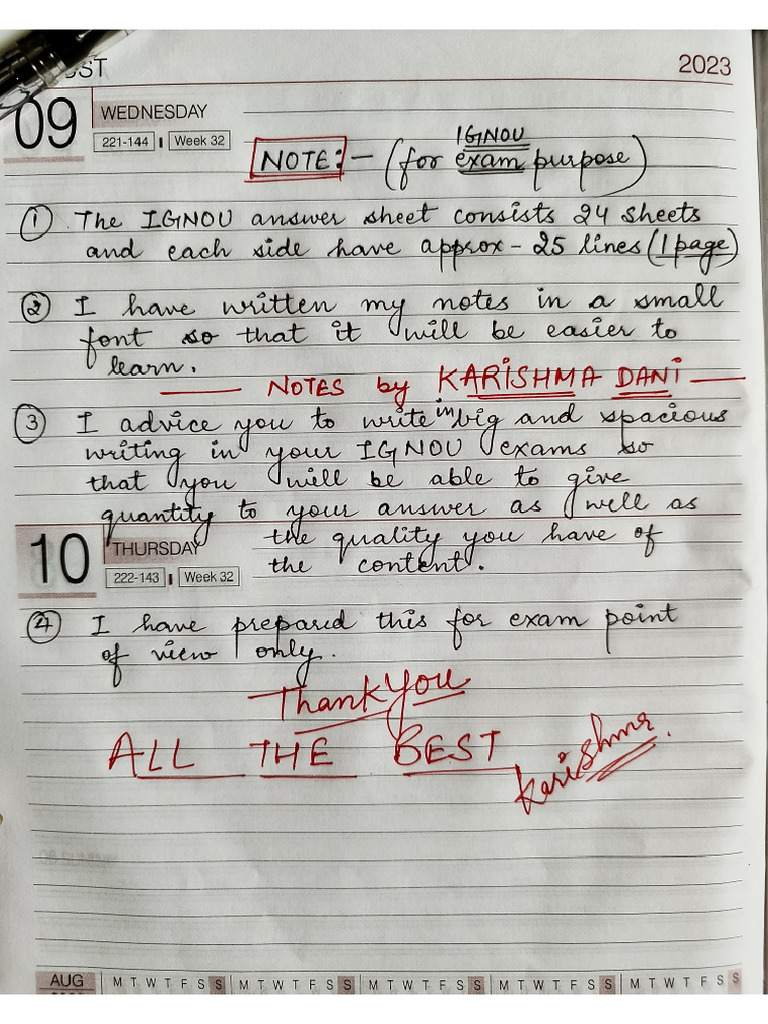 UST 2023
09 WEDNESDAY
221-144 Week 32
NOTE:- (for IGNOU exam purpose)
① The IGNOU answer sheet consists 24 sheets
and each side have approx - 25 lines (1 page)
② I have written my notes in a small
font so that it will be easier to
learn.
NOTES by KARISHMA DANI
③ I advice you to write in big and spacious
writing in your IGNOU exams so
that you will be able to give
quantity to your answer as well as
the quality you have of
10 THURSDAY
222-143 Week 32
the content.
④ I have prepared this for exam point
of view only.
Thank You
ALL THE BEST
Karishma.
AUG M T W T F S S M T W T F S S M T W T F S S M T W T F S S M T W T F S S